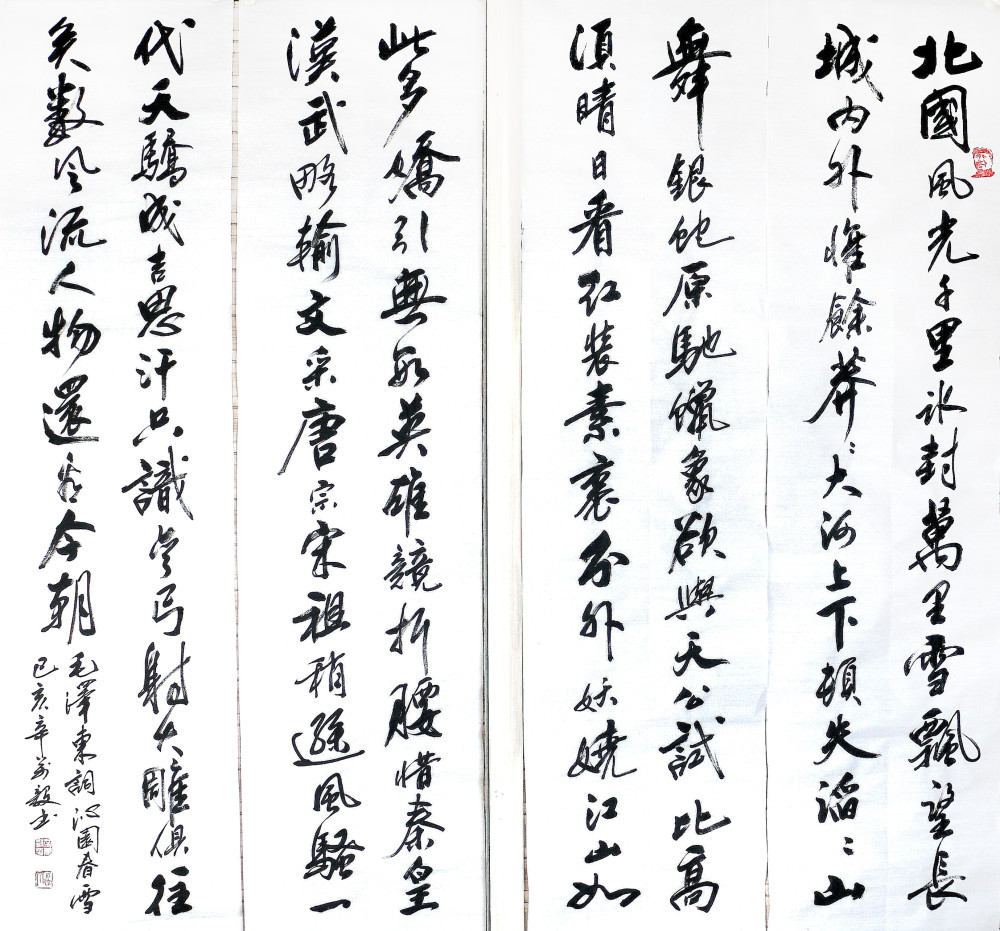 北國風光千里冰封萬里雪飄望長
城内外惟餘莽〻大河上下頓失滔〻山
舞銀蛇原馳蠟象欲與天公試比高
須晴日看红裝素裹分外妖嬈江山如
此多嬌引無數英雄競折腰惜秦皇
漢武略輸文采唐宗宋祖稍遜風騷一
代天驕成吉思汗只識弯弓射大雕俱往
矣数风流人物還看今朝
毛澤東詞沁園春雪
己亥辛毅书